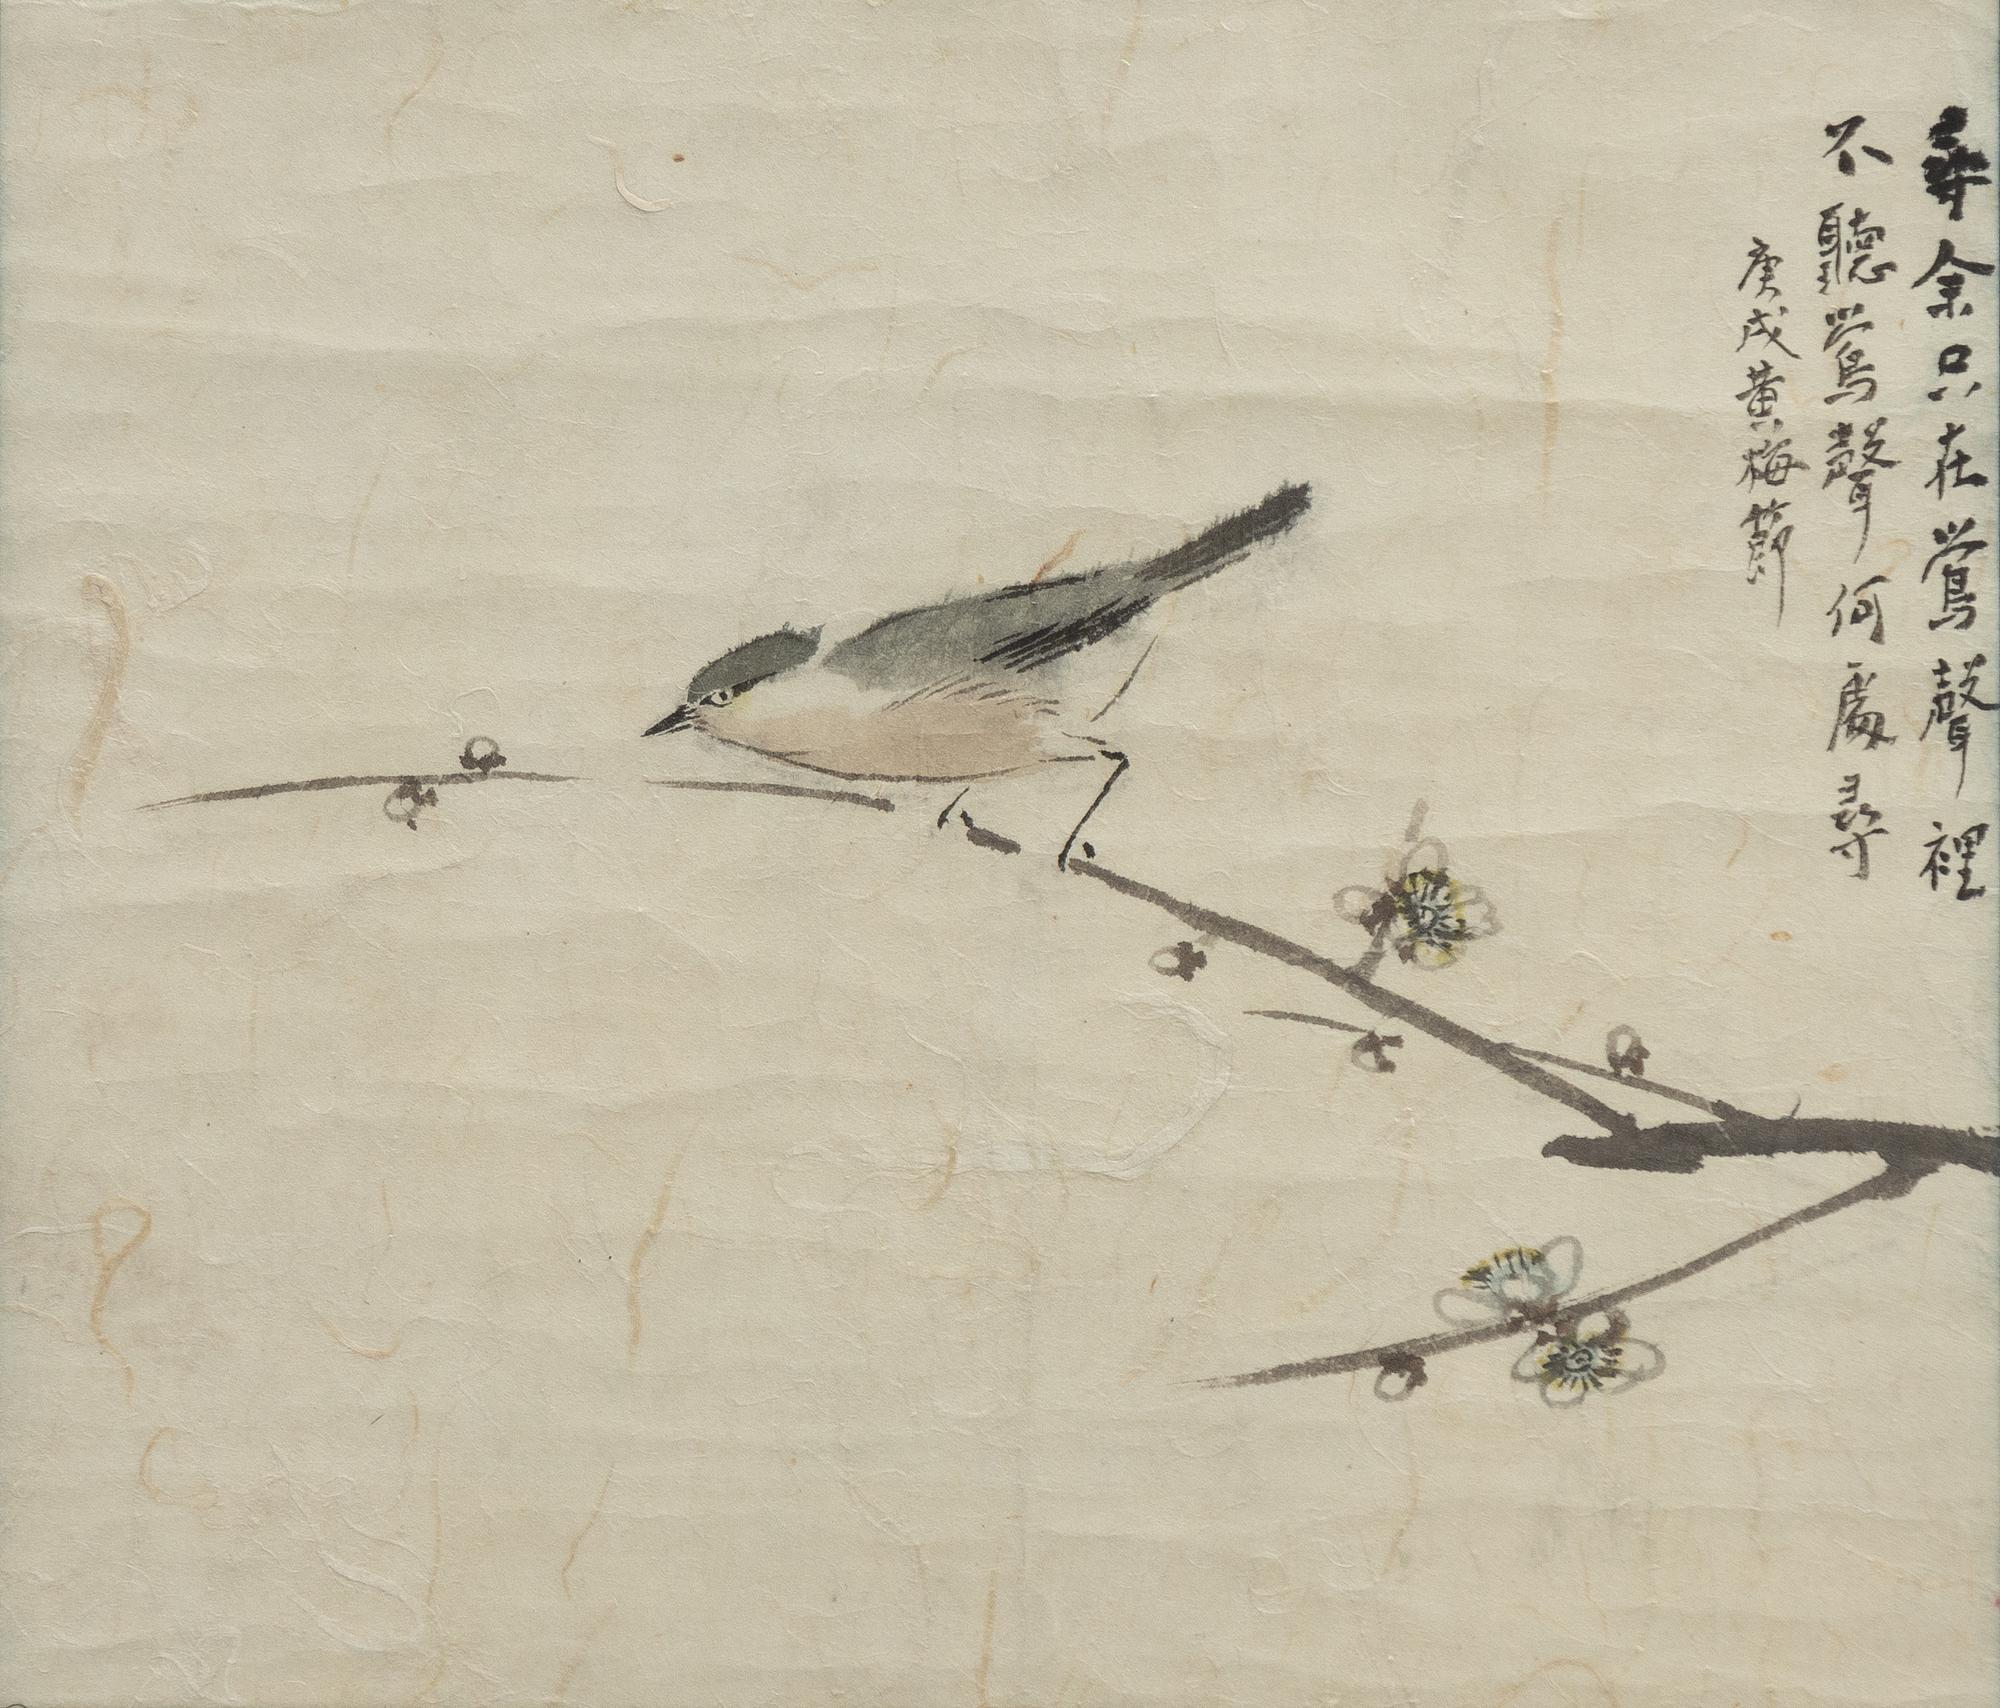 尋余只在鶯聲裡
不聽鶯聲何處尋
庚戌黃梅節